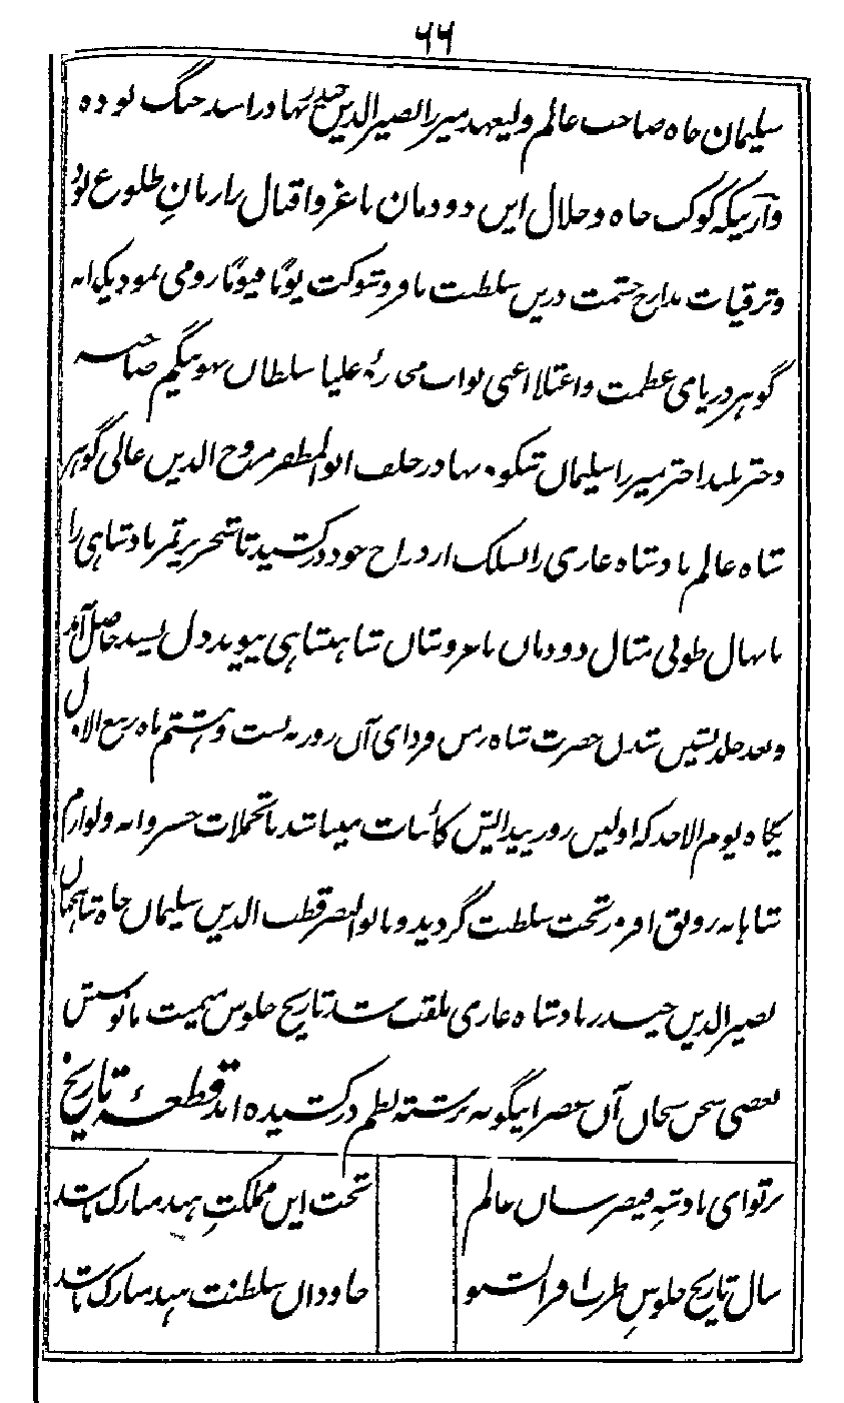 ۶۶
سلیمان جاه صاحب عالم ولیعهد میرزا نصیر الدین حیدر بهادر اسد جنگ بوده
و آریکه کوکب جاه و جلال این دودمان با عز و اقبال را زمانِ طلوع بود
و ترقیات مدارج حشمت درین سلطنت با فر و شوکت یوماً فیوماً رومی نمود یکدانه
گوهر دریای عظمت و اعتلا اعنی نواب علیا سلطان بهو بیگم صاحبه
دختر بلند اختر میرزا سلیمان شکوه بهادر خلف ابو المظفر الدین عالی گوهر
شاه عالم بادشاه غازی را بسلک ازدواج خود در کشید تا شجر پر ثمر بادشاهی را
با نهال طوبی مثال دودمان با عز و شان شاهنشاهی پیوند دل پسند حاصل آمد
و بعد خلد نشین شدن حضرت شاه زمن فردای آن روز که بست و هشتم ماه ربیع الاول
پگاه یوم الاحد که اولین روز پیدایش کائنات میباشد با تجملات خسروانه و لوازم
شاهانه رونق افروز تخت سلطنت گردید و بابو النصر قطب الدین سلیمان جاه شاهجهان
نصیر الدین حیدر بادشاه غازی ملقب شد تاریخ جلوس میمنت مانوسش
بعضی سخن سنجان آن عصر اینگونه برشته نظم در کشیده اند قطعهٔ تاریخ
بر تو ای بادشهِ قیصر سان عالم تخت این مملکتِ هند مبارک باشد
سال تاریخ جلوسِ طرب افزا بشنو جاودان سلطنت هند مبارک باشد